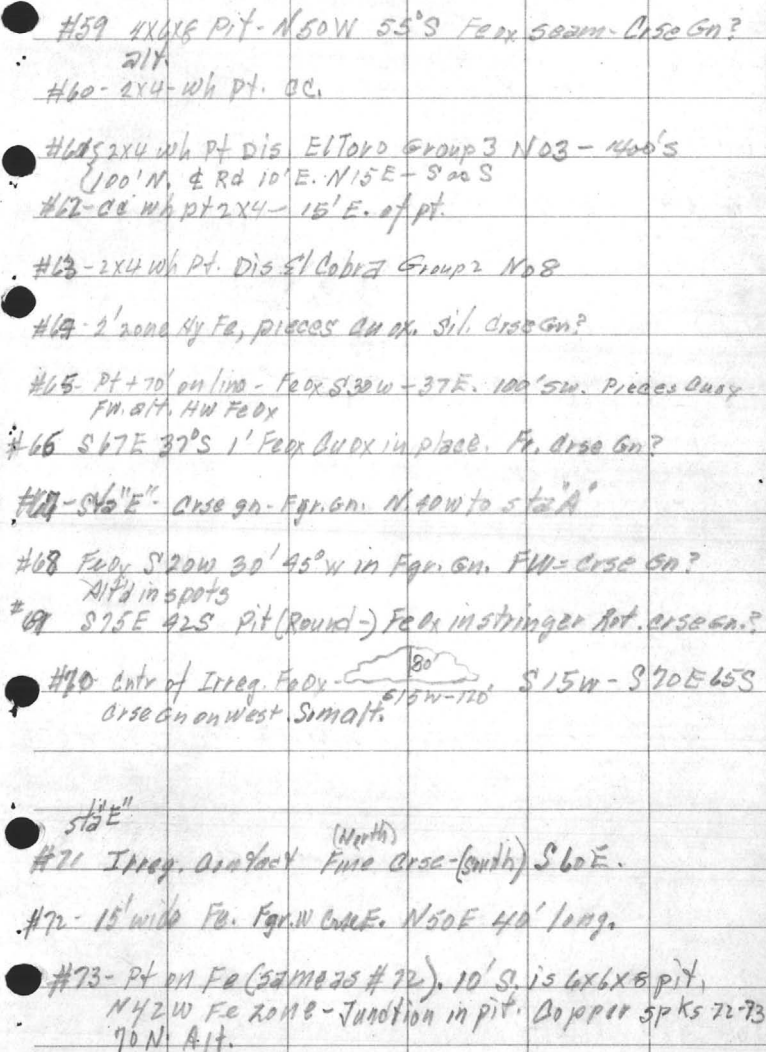 #59 4x6x8 Pit - N50W 55°S Feox seam - Crse Gn?
alt.
#60 - 2x4 - Wh pt. CC.
#61 2x4 wh Pt Dis El Toro Group 3 No3 - 1400's
100'N. ¢ Rd 10'E. N15E - S
#62 - CC wh pt 2x4 - 15'E. of pt.
#63 - 2x4 wh Pt. Dis El Cobra Group 2 No8
#64 - 2' zone Hy Fe, pieces Cuox. Sil. Crse Gn?
#65 - Pt + 70' on line - Feox S30W - 37E. 100'SW. Pieces Cuox
FW. alt. HW Feox
#66 S67E 37°S 1' Feox Cuox in place. Fr. Crse Gn?
#67 - Sta "E" - Crse gn - Fgr. Gn. N.40W to sta "A"
#68 Feox S20W 30' 45°W in Fgr. Gn. FW = Crse Gn?
Alt'd in spots
#69 S75E 42S Pit (Round-) Feox in stringer Rot. crse Gn.?
#70 Cntr of Irreg. Feox - 80' S15W - S70E 65S
S15W-120'
Crse Gn on West. Som alt.
sta "E"
(North)
#71 Irreg. Contact Fine Crse - (South) S60E.
#72 - 15' wide Fe. Fgr. W Crse E. N50E 40' long.
#73 - Pt on Fe (same as #72). 10'S. is 6x6x8 pit,
N42W Fe zone - Junction in pit. Copper spks 72-73
70 N. Alt.